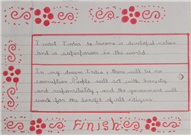 I want India to become a developed nation
and a superpower in the world.
In my dream India, there will be no
corruption. People will act with honesty
and responsibility, and the government will
work for the benefit of all citizens.
Finish